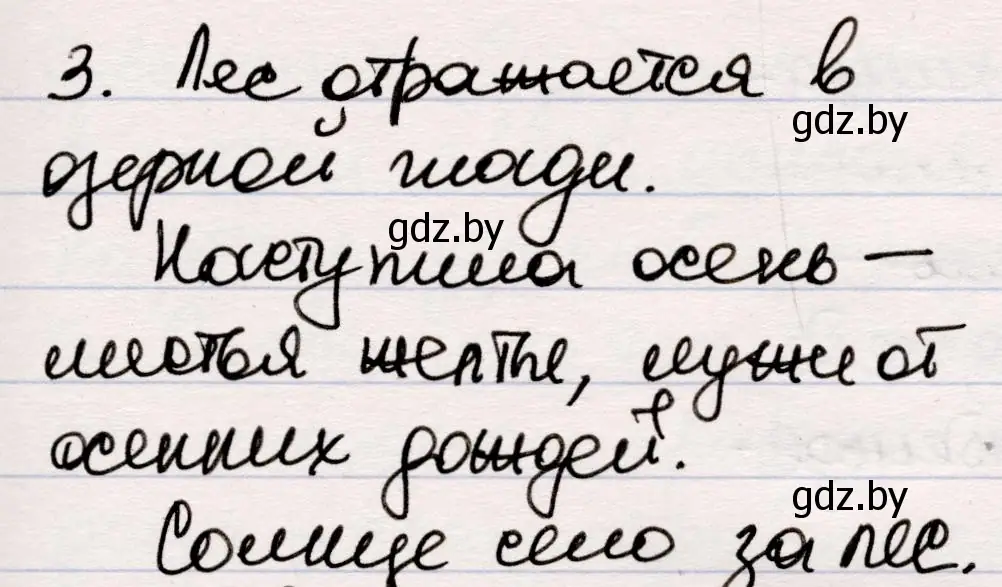 3. Лес отражается в
gdz.by
озерной глади.
gdz.by
Наступила осень –
листья желты, лужи от
осенних дождей.
gdz.by
Солнце село за лес.